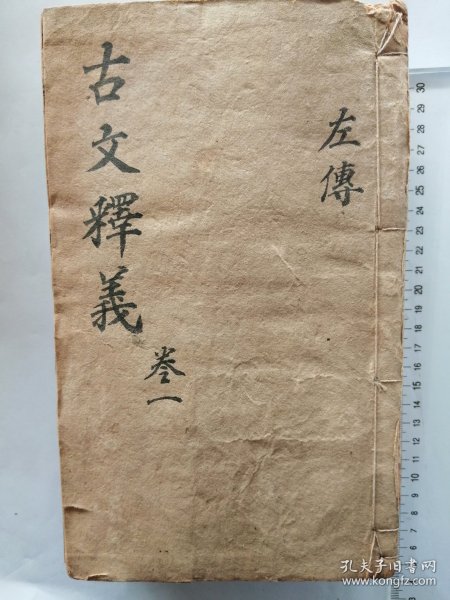 左傳
古文釋義
卷一
30
29
28
27
26
25
24
23
22
21
20
19
18
17
16
15
14
13
12
11
10
9
8
7
6
5
孔夫子旧书网
www.kongfz.com